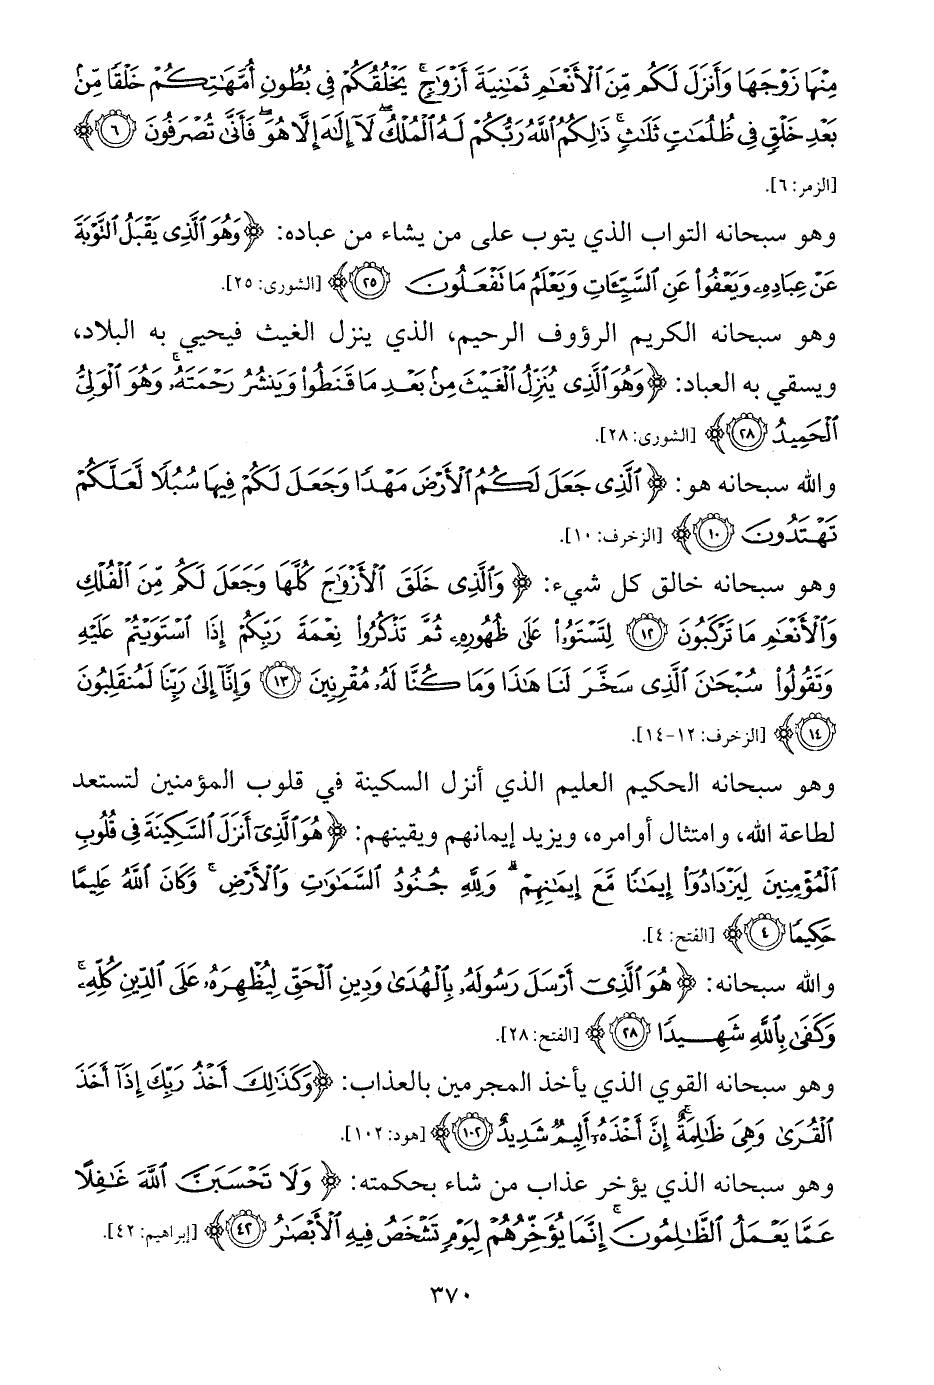 مِنْهَا زَوْجَهَا وَأَنزَلَ لَكُم مِّنَ ٱلْأَنْعَٰمِ ثَمَٰنِيَةَ أَزْوَٰجٍ ۚ يَخْلُقُكُمْ فِى بُطُونِ أُمَّهَٰتِكُمْ خَلْقًا مِّنۢ
بَعْدِ خَلْقٍ فِى ظُلُمَٰتٍ ثَلَٰثٍ ۚ ذَٰلِكُمُ ٱللَّهُ رَبُّكُمْ لَهُ ٱلْمُلْكُ ۖ لَآ إِلَٰهَ إِلَّا هُوَ ۖ فَأَنَّىٰ تُصْرَفُونَ ﴿٦﴾
[الزمر: ٦].
وهو سبحانه التواب الذي يتوب على من يشاء من عباده: ﴿ وَهُوَ ٱلَّذِى يَقْبَلُ ٱلتَّوْبَةَ
عَنْ عِبَادِهِۦ وَيَعْفُوا۟ عَنِ ٱلسَّيِّـَٔاتِ وَيَعْلَمُ مَا تَفْعَلُونَ ٢٥ ﴾ [الشورى: ٢٥].
وهو سبحانه الكريم الرؤوف الرحيم، الذي ينزل الغيث فيحيي به البلاد،
ويسقي به العباد: ﴿ وَهُوَ ٱلَّذِى يُنَزِّلُ ٱلْغَيْثَ مِنۢ بَعْدِ مَا قَنَطُوا۟ وَيَنشُرُ رَحْمَتَهُۥ ۚ وَهُوَ ٱلْوَلِىُّ
ٱلْحَمِيدُ ٢٨ ﴾ [الشورى: ٢٨].
والله سبحانه هو: ﴿ ٱلَّذِى جَعَلَ لَكُمُ ٱلْأَرْضَ مَهْدًا وَجَعَلَ لَكُمْ فِيهَا سُبُلًا لَّعَلَّكُمْ
تَهْتَدُونَ ١٠ ﴾ [الزخرف: ١٠].
وهو سبحانه خالق كل شيء: ﴿ وَٱلَّذِى خَلَقَ ٱلْأَزْوَٰجَ كُلَّهَا وَجَعَلَ لَكُم مِّنَ ٱلْفُلْكِ
وَٱلْأَنْعَٰمِ مَا تَرْكَبُونَ ١٢ لِتَسْتَوُۥا۟ عَلَىٰ ظُهُورِهِۦ ثُمَّ تَذْكُرُوا۟ نِعْمَةَ رَبِّكُمْ إِذَا ٱسْتَوَيْتُمْ عَلَيْهِ
وَتَقُولُوا۟ سُبْحَٰنَ ٱلَّذِى سَخَّرَ لَنَا هَٰذَا وَمَا كُنَّا لَهُۥ مُقْرِنِينَ ١٣ وَإِنَّآ إِلَىٰ رَبِّنَا لَمُنقَلِبُونَ
١٤ ﴾ [الزخرف: ١٢-١٤].
وهو سبحانه الحكيم العليم الذي أنزل السكينة في قلوب المؤمنين لتستعد
لطاعة الله، وامتثال أوامره، ويزيد إيمانهم ويقينهم: ﴿ هُوَ ٱلَّذِىٓ أَنزَلَ ٱلسَّكِينَةَ فِى قُلُوبِ
ٱلْمُؤْمِنِينَ لِيَزْدَادُوٓا۟ إِيمَٰنًا مَّعَ إِيمَٰنِهِمْ ۗ وَلِلَّهِ جُنُودُ ٱلسَّمَٰوَٰتِ وَٱلْأَرْضِ ۚ وَكَانَ ٱللَّهُ عَلِيمًا
حَكِيمًا ٤ ﴾ [الفتح: ٤].
والله سبحانه: ﴿ هُوَ ٱلَّذِىٓ أَرْسَلَ رَسُولَهُۥ بِٱلْهُدَىٰ وَدِينِ ٱلْحَقِّ لِيُظْهِرَهُۥ عَلَى ٱلدِّينِ كُلِّهِۦ ۚ
وَكَفَىٰ بِٱللَّهِ شَهِيدًا ٢٨ ﴾ [الفتح: ٢٨].
وهو سبحانه القوي الذي يأخذ المجرمين بالعذاب: ﴿ وَكَذَٰلِكَ أَخْذُ رَبِّكَ إِذَآ أَخَذَ
ٱلْقُرَىٰ وَهِىَ ظَٰلِمَةٌ ۚ إِنَّ أَخْذَهُۥٓ أَلِيمٌ شَدِيدٌ ١٠٢ ﴾ [هود: ١٠٢].
وهو سبحانه الذي يؤخر عذاب من شاء بحكمته: ﴿ وَلَا تَحْسَبَنَّ ٱللَّهَ غَٰفِلًا
عَمَّا يَعْمَلُ ٱلظَّٰلِمُونَ ۚ إِنَّمَا يُؤَخِّرُهُمْ لِيَوْمٍ تَشْخَصُ فِيهِ ٱلْأَبْصَٰرُ ٤٢ ﴾ [إبراهيم: ٤٢].
٣٧٠